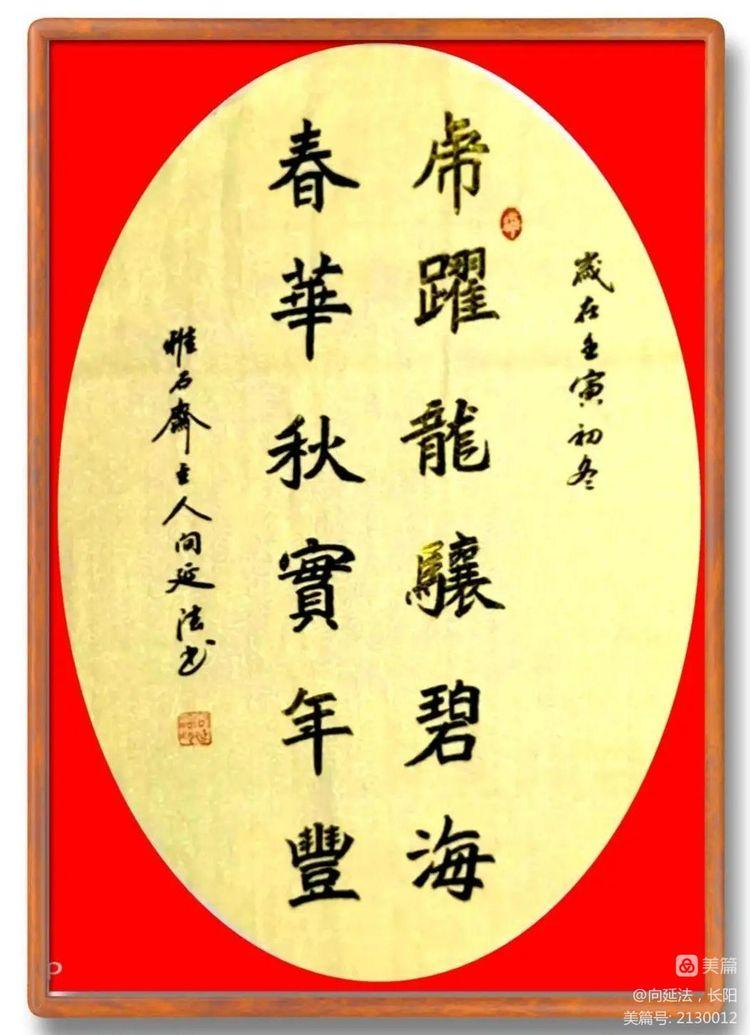 歲在壬寅初冬
虎躍龍驤碧海
春華秋實年豐
雅石齋主人向延法书
美篇
@向延法，长阳
美篇号: 2130012